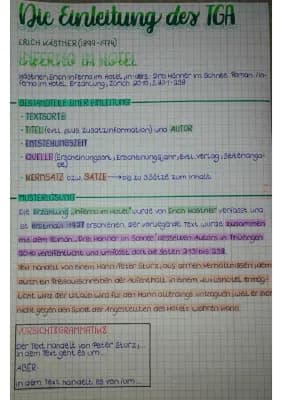 Die Einleitung des TGA
ERICH KÄSTNER (1899-1974)
INFERNO IM HOTEL
Kästner, Erich: Inferno im Hotel, in: ders.: Drei Männer im Schnee. Roman / In-
ferno im Hotel. Erzählung, Zürich 2010, S. 
BESTANDTEILE EINER EINLEITUNG
- TEXTSORTE
- TITEL (evtl. plus Zusatzinformation) und AUTOR
- ENTSTEHUNGSZEIT
- QUELLE (Erscheinungsort, Erscheinungsjahr, evtl. Verlag, Seitenanga-
be)
- KERNSATZ bzw. SÄTZE → bis zu 3 Sätze zum Inhalt
MUSTERLÖSUNG
Die Erzählung „Inferno im Hotel" wurde von Erich Kästner verfasst und
ist erstmals 1927 erschienen. Der vorliegende Text wurde zusammen
mit dem Roman „Drei Männer im Schnee" desselben Autors in
2010 veröffentlicht und umfasst dort die Seiten
Text handelt von einem Mann, Peter Sturz, aus armen Verhältnissen, dem
durch ein Preisausschreiben der Aufenthalt in einem Luxushotel ermög-
licht wird. Der Urlaub wird für den Mann allerdings unbequem, weil er sich
nicht gegen den Spott der Angestellten des Hotels wehren kann.
VORSICHT GRAMMATIK!
Der Text handelt von Peter Sturz, ...
In dem Text geht es um ...
ABER:
In dem Text handelt es von/um ...